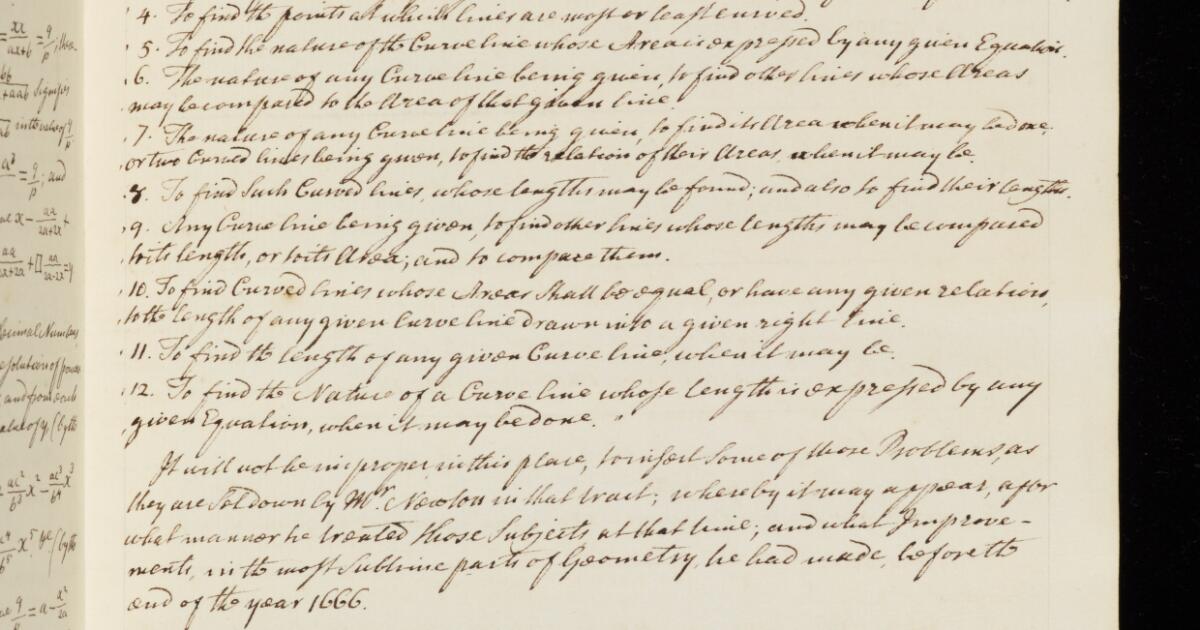 4. To find the points at which lines are most or least curved.
5. To find the nature of the Curve line whose Area is expressed by any given Equation.
6. The nature of any Curve line being given, to find other lines whose Areas
may be compared to the Area of that given line.
7. The nature of any Curve line being given, to find its Area when it may be done,
or two Curved lines being given, to find the relation of their Areas, when it may be.
8. To find Such Curved lines, whose lengths may be found; and also to find their lengths.
9. Any Curve line being given, to find other lines whose lengths may be compared
to its length, or to its Area; and to compare them.
10. To find Curved lines whose Areas Shall be equal, or have any given relation,
to the length of any given Curve line drawn into a given right line.
11. To find the length of any given Curve line, when it may be.
12. To find the Nature of a Curve line whose length is expressed by any
given Equation, when it may be done. "
It will not be improper, in this place, to insert Some of those Problems, as
they are Set down by Mr. Newton in that tract; whereby it may appear, after
what manner he treated those Subjects at that time; and what Improve-
ments, in the most Sublime parts of Geometry, he had made, before the
end of the year 1666.